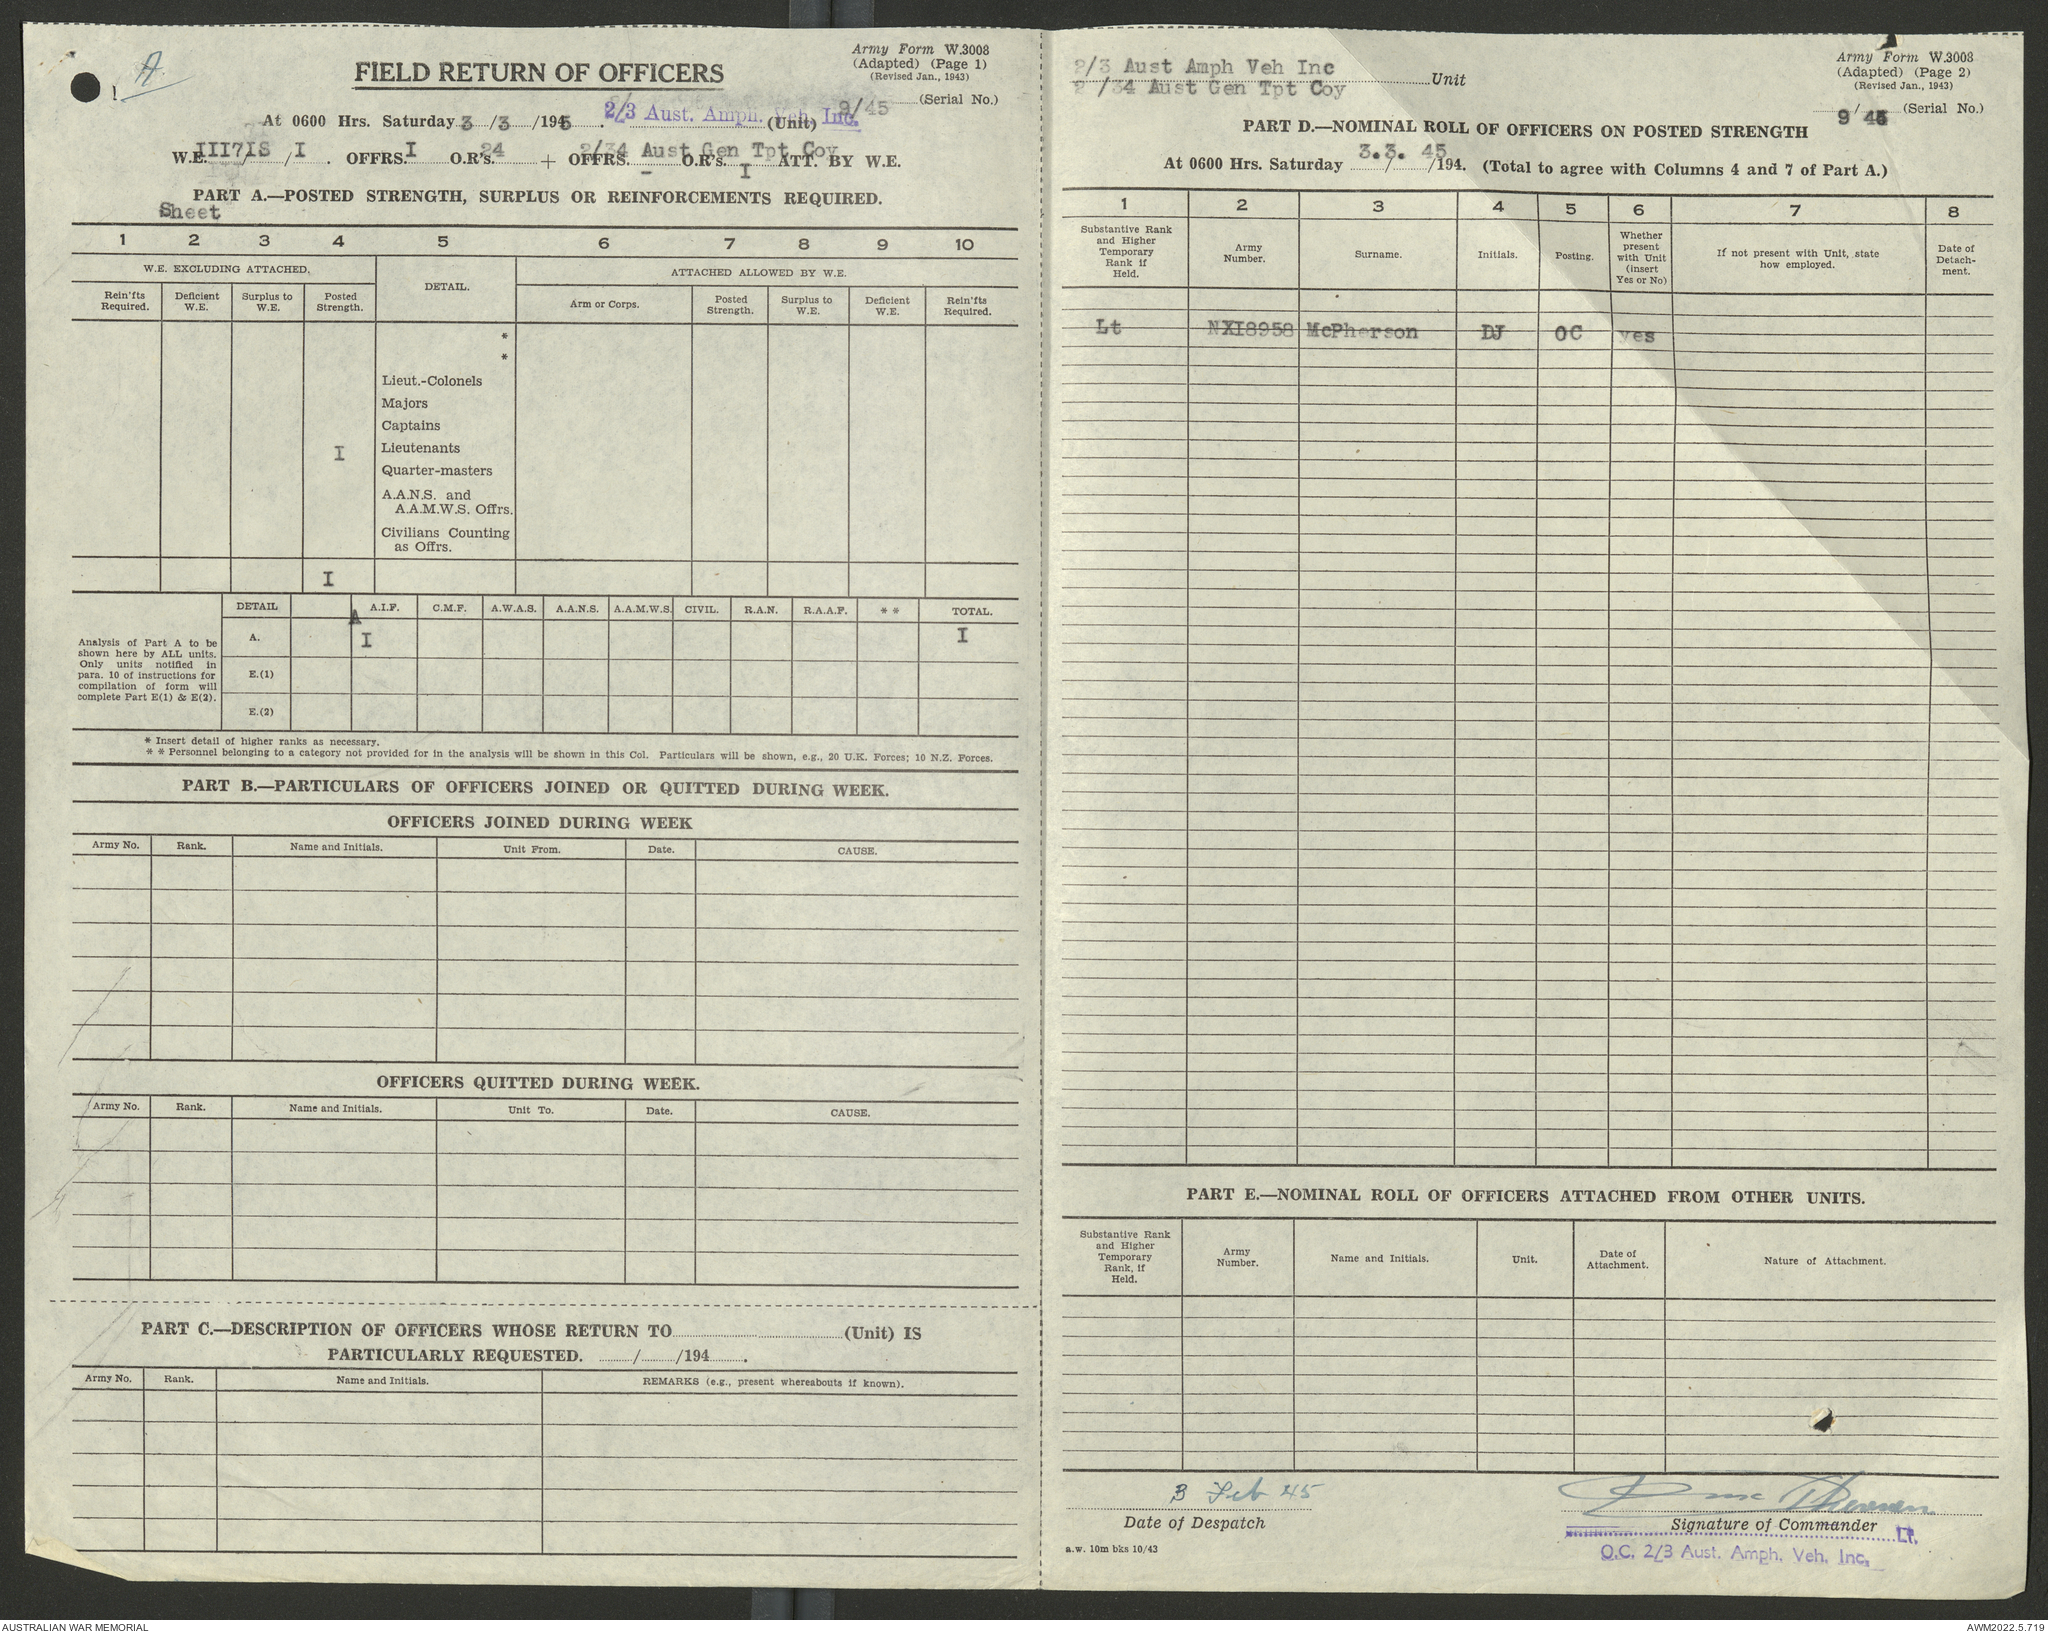 A.
Army Form W.3008
(Adapted) (Page 1)
(Revised Jan., 1943)
FIELD RETURN OF OFFICERS
9/45 (Serial No.)
At 0600 Hrs. Saturday 3/3/1945. 2/3 Aust. Amph. Veh. Inc. (Unit)
2/34 Aust Gen Tpt Coy
W.E. III7IS/I. OFFRS. I O.R's. 24 + OFFRS. - O.R's. I ATT. BY W.E.
PART A.—POSTED STRENGTH, SURPLUS OR REINFORCEMENTS REQUIRED.
Sheet
1 2 3 4 5 6 7 8 9 10
W.E. EXCLUDING ATTACHED. DETAIL. ATTACHED ALLOWED BY W.E.
Rein'fts Required. Deficient W.E. Surplus to W.E. Posted Strength. Arm or Corps. Posted Strength. Surplus to W.E. Deficient W.E. Rein'fts Required.
*
*
Lieut.-Colonels
Majors
Captains
I Lieutenants
Quarter-masters
A.A.N.S. and
A.A.M.W.S. Offrs.
Civilians Counting
as Offrs.
I
DETAIL A.I.F. C.M.F. A.W.A.S. A.A.N.S. A.A.M.W.S. CIVIL. R.A.N. R.A.A.F. ** TOTAL.
A
Analysis of Part A to be
shown here by ALL units.
Only units notified in
para. 10 of instructions for
compilation of form will
complete Part E(1) & E(2).
A. I I
E.(1)
E.(2)
* Insert detail of higher ranks as necessary.
** Personnel belonging to a category not provided for in the analysis will be shown in this Col. Particulars will be shown, e.g., 20 U.K. Forces; 10 N.Z. Forces.
PART B.—PARTICULARS OF OFFICERS JOINED OR QUITTED DURING WEEK.
OFFICERS JOINED DURING WEEK
Army No. Rank. Name and Initials. Unit From. Date. CAUSE.
OFFICERS QUITTED DURING WEEK.
Army No. Rank. Name and Initials. Unit To. Date. CAUSE.
PART C.—DESCRIPTION OF OFFICERS WHOSE RETURN TO (Unit) IS
PARTICULARLY REQUESTED. / /194 .
Army No. Rank. Name and Initials. REMARKS (e.g., present whereabouts if known).
2/3 Aust Amph Veh Inc
2 /34 Aust Gen Tpt Coy Unit
Army Form W.3008
(Adapted) (Page 2)
(Revised Jan., 1943)
9 / 45 (Serial No.)
PART D.—NOMINAL ROLL OF OFFICERS ON POSTED STRENGTH
At 0600 Hrs. Saturday 3.3. 45 / /194. (Total to agree with Columns 4 and 7 of Part A.)
1 2 3 4 5 6 7 8
Substantive Rank and Higher Temporary Rank if Held. Army Number. Surname. Initials. Posting. Whether present with Unit (insert Yes or No) If not present with Unit, state how employed. Date of Detach-ment.
Lt NXI8958 McPherson DJ OC yes
PART E.—NOMINAL ROLL OF OFFICERS ATTACHED FROM OTHER UNITS.
Substantive Rank and Higher Temporary Rank, if Held. Army Number. Name and Initials. Unit. Date of Attachment. Nature of Attachment.
3 Feb 45
Date of Despatch
Signature of Commander Lt.
O.C. 2/3 Aust. Amph. Veh. Inc.
a.w. 10m bks 10/43
AUSTRALIAN WAR MEMORIAL
AWM2022.5.719